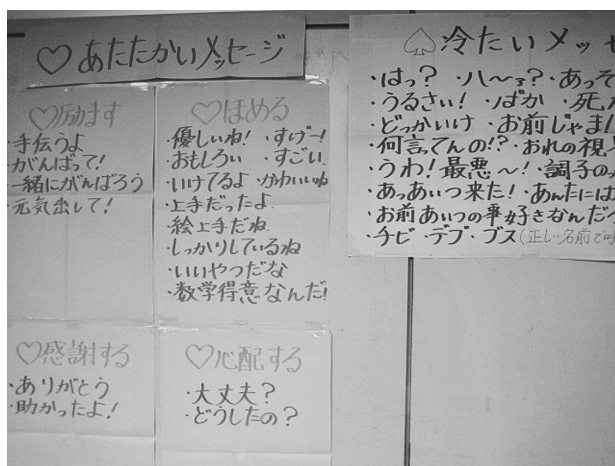 ♡あたたかいメッセージ
♡励ます
・手伝うよ
・がんばって!
・一緒にがんばろう
・元気出して!
♡ほめる
・優しいね! ・すげー!
・おもしろい ・すごい
・いけてるよ ・かわいいね
・上手だったよ
・絵上手だね
・しっかりしているね
・いいやつだな
・数学得意なんだ!
♡感謝する
・ありがとう
・助かったよ!
♡心配する
・大丈夫?
・どうしたの?
♤冷たいメッセ
・はっ? ・ハ〜ッ? ・あっそ
・うるさい! ・ばか ・死
・どっかいけ お前じゃま!
・何言ってんの!? ・おれの視
・うわ!最悪〜! ・調子の
・あっあいつ来た! ・あんたには
・お前あいつの事好きなんだ
・チビ ・デブ ・ブス(正しい名前で